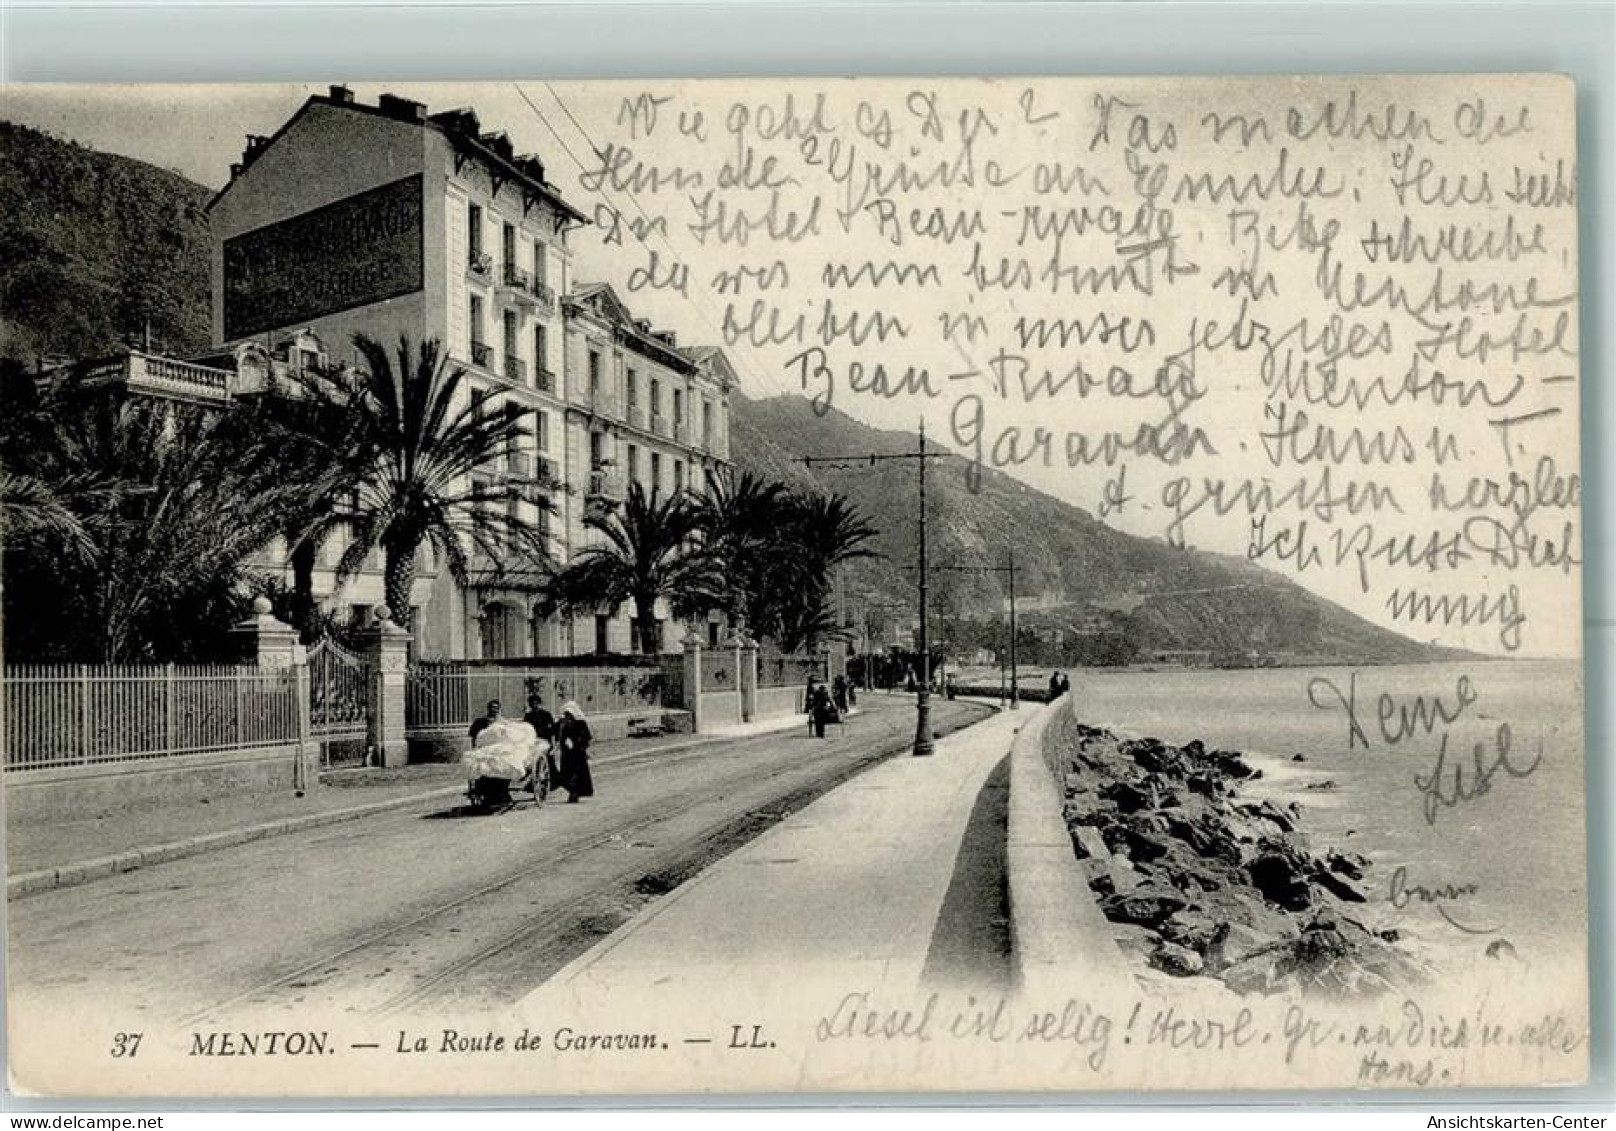 Wie geht es Dir? Was machen die
Hunde? Grüsse an Emilie. Hier seht
Du Hotel Beau-rivage. Bitte schreibe,
da wir nun bestimmt in Mentone
bleiben in unser jetziges Hotel
Beau-Rivage Menton-
Garavan. Hans u. T.
A. grüssen herzlich
Ich Küss Dich
innig
Deine
Liesl
BEAU RIVAGE
GARAGE
37 MENTON. — La Route de Garavan. — LL.
Liesel ist selig! Herzl. Gr. an Dich u. alle
Hans.
delcampe.net
Ansichtskarten-Center